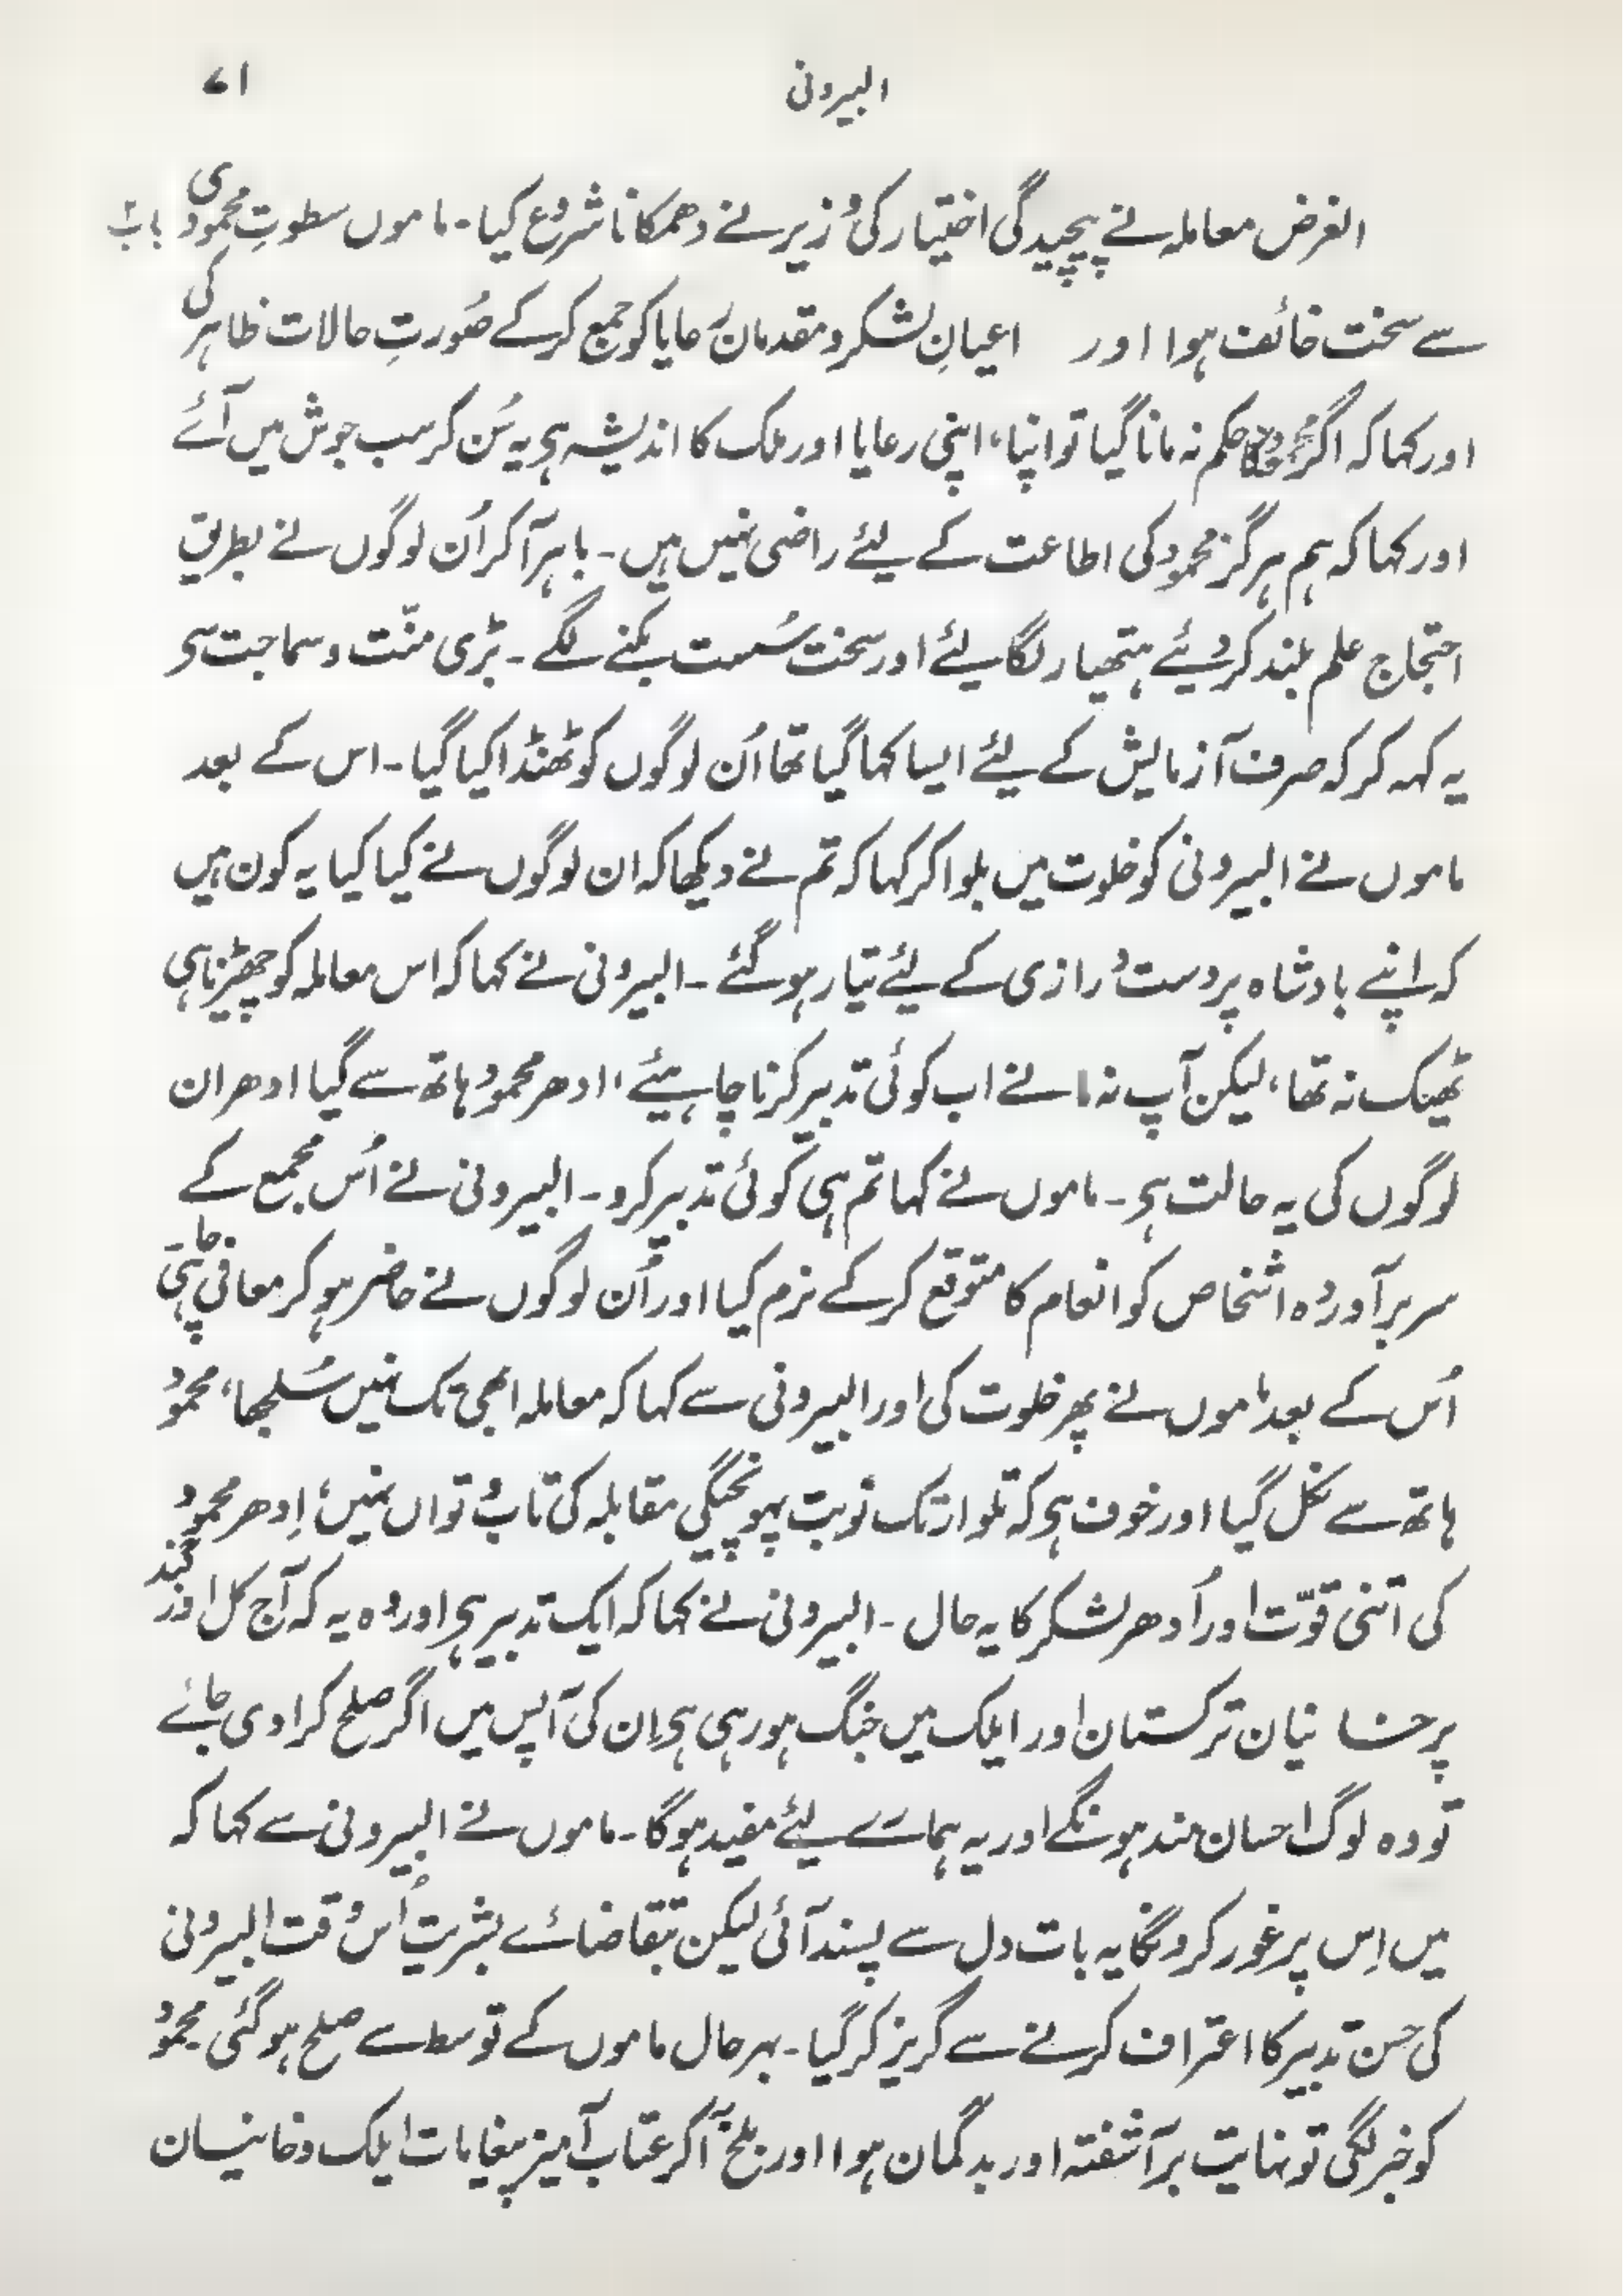 البیرونی ۷۱
الغرض معاملہ نے پیچیدگی اختیار کی وُزیر نے دھمکانا شروع کیا۔ ماموں سطوتِ محمودی باب
سے سخت خائف ہوا اور اعیانِ لشکر و مقدمانِ رعایا کو جمع کرکے صُورتِ حالات ظاہر کی
اور کہا کہ اگر محمود کا حکم نہ مانا گیا تو اپنا، اپنی رعایا اور ملک کا اندیشہ ہی یہ سُن کر سب جوش میں آئے
اور کہا کہ ہم ہرگز محمود کی اطاعت کے لیئے راضی نہیں ہیں۔ باہر آکر اُن لوگوں نے بطریق
احتجاج علم بلند کردیئے ہتھیار لگا لیئے اور سخت سُست بکنے لگے۔ بڑی منّت و سماجت سی
یہ کہہ کر کہ صرف آزمایش کے لیئے ایسا کہا گیا تھا اُن لوگوں کو ٹھنڈا کیا گیا۔ اس کے بعد
ماموں نے البیرونی کو خلوت میں بلوا کر کہا کہ تم نے دیکھا کہ ان لوگوں نے کیا کیا یہ کون ہیں
کہ اپنے بادشاہ پر دست درازی کے لیئے تیار ہوگئے۔ البیرونی نے کہا کہ اس معاملہ کو چھیڑنا ہی
ٹھیک نہ تھا، لیکن آپ نہ مانے اب کوئی تدبیر کرنا چاہیئے، ادھر محمود ہاتھ سے گیا ادھر ان
لوگوں کی یہ حالت ہی۔ ماموں نے کہا تم ہی کوئی تدبیر کرو۔ البیرونی نے اُس مجمع کے
سربرآوردہ اشخاص کو انعام کا متوقع کرکے نرم کیا اور اُن لوگوں نے حاضر ہوکر معافی چاہی
اُس کے بعد ماموں نے پھر خلوت کی اور البیرونی سے کہا کہ معاملہ ابھی تک نہیں سُلجھا، محمود
ہاتھ سے نکل گیا اور خوف ہی کہ تلوار تک نوبت پہونچیگی مقابلہ کی تاب و تواں نہیں، اِدھر محمود
کی اتنی قوّت اور اُدھر لشکر کا یہ حال۔ البیرونی نے کہا کہ ایک تدبیر ہی اور وہ یہ کہ آج کل اوزکند
پر خانیان ترکستان اور ایلک میں جنگ ہورہی ہی اِن کی آپس میں اگر صلح کرا دی جائے
تو وہ لوگ احسان مند ہونگے اور یہ ہمارے لیئے مفید ہوگا۔ ماموں نے البیرونی سے کہا کہ
میں اِس پر غور کرونگا یہ بات دل سے پسند آئی لیکن بتقاضائے بشریت اُس وقت البیرونی
کی حسن تدبیر کا اعتراف کرنے سے گریز کرگیا۔ بہرحال ماموں کے توسط سے صلح ہوگئی۔ محمود
کو خبر لگی تو نہایت برآشفتہ اور بدگمان ہوا اور بلخ آکر عتاب آمیز پیغامات ایلک و خانیسان